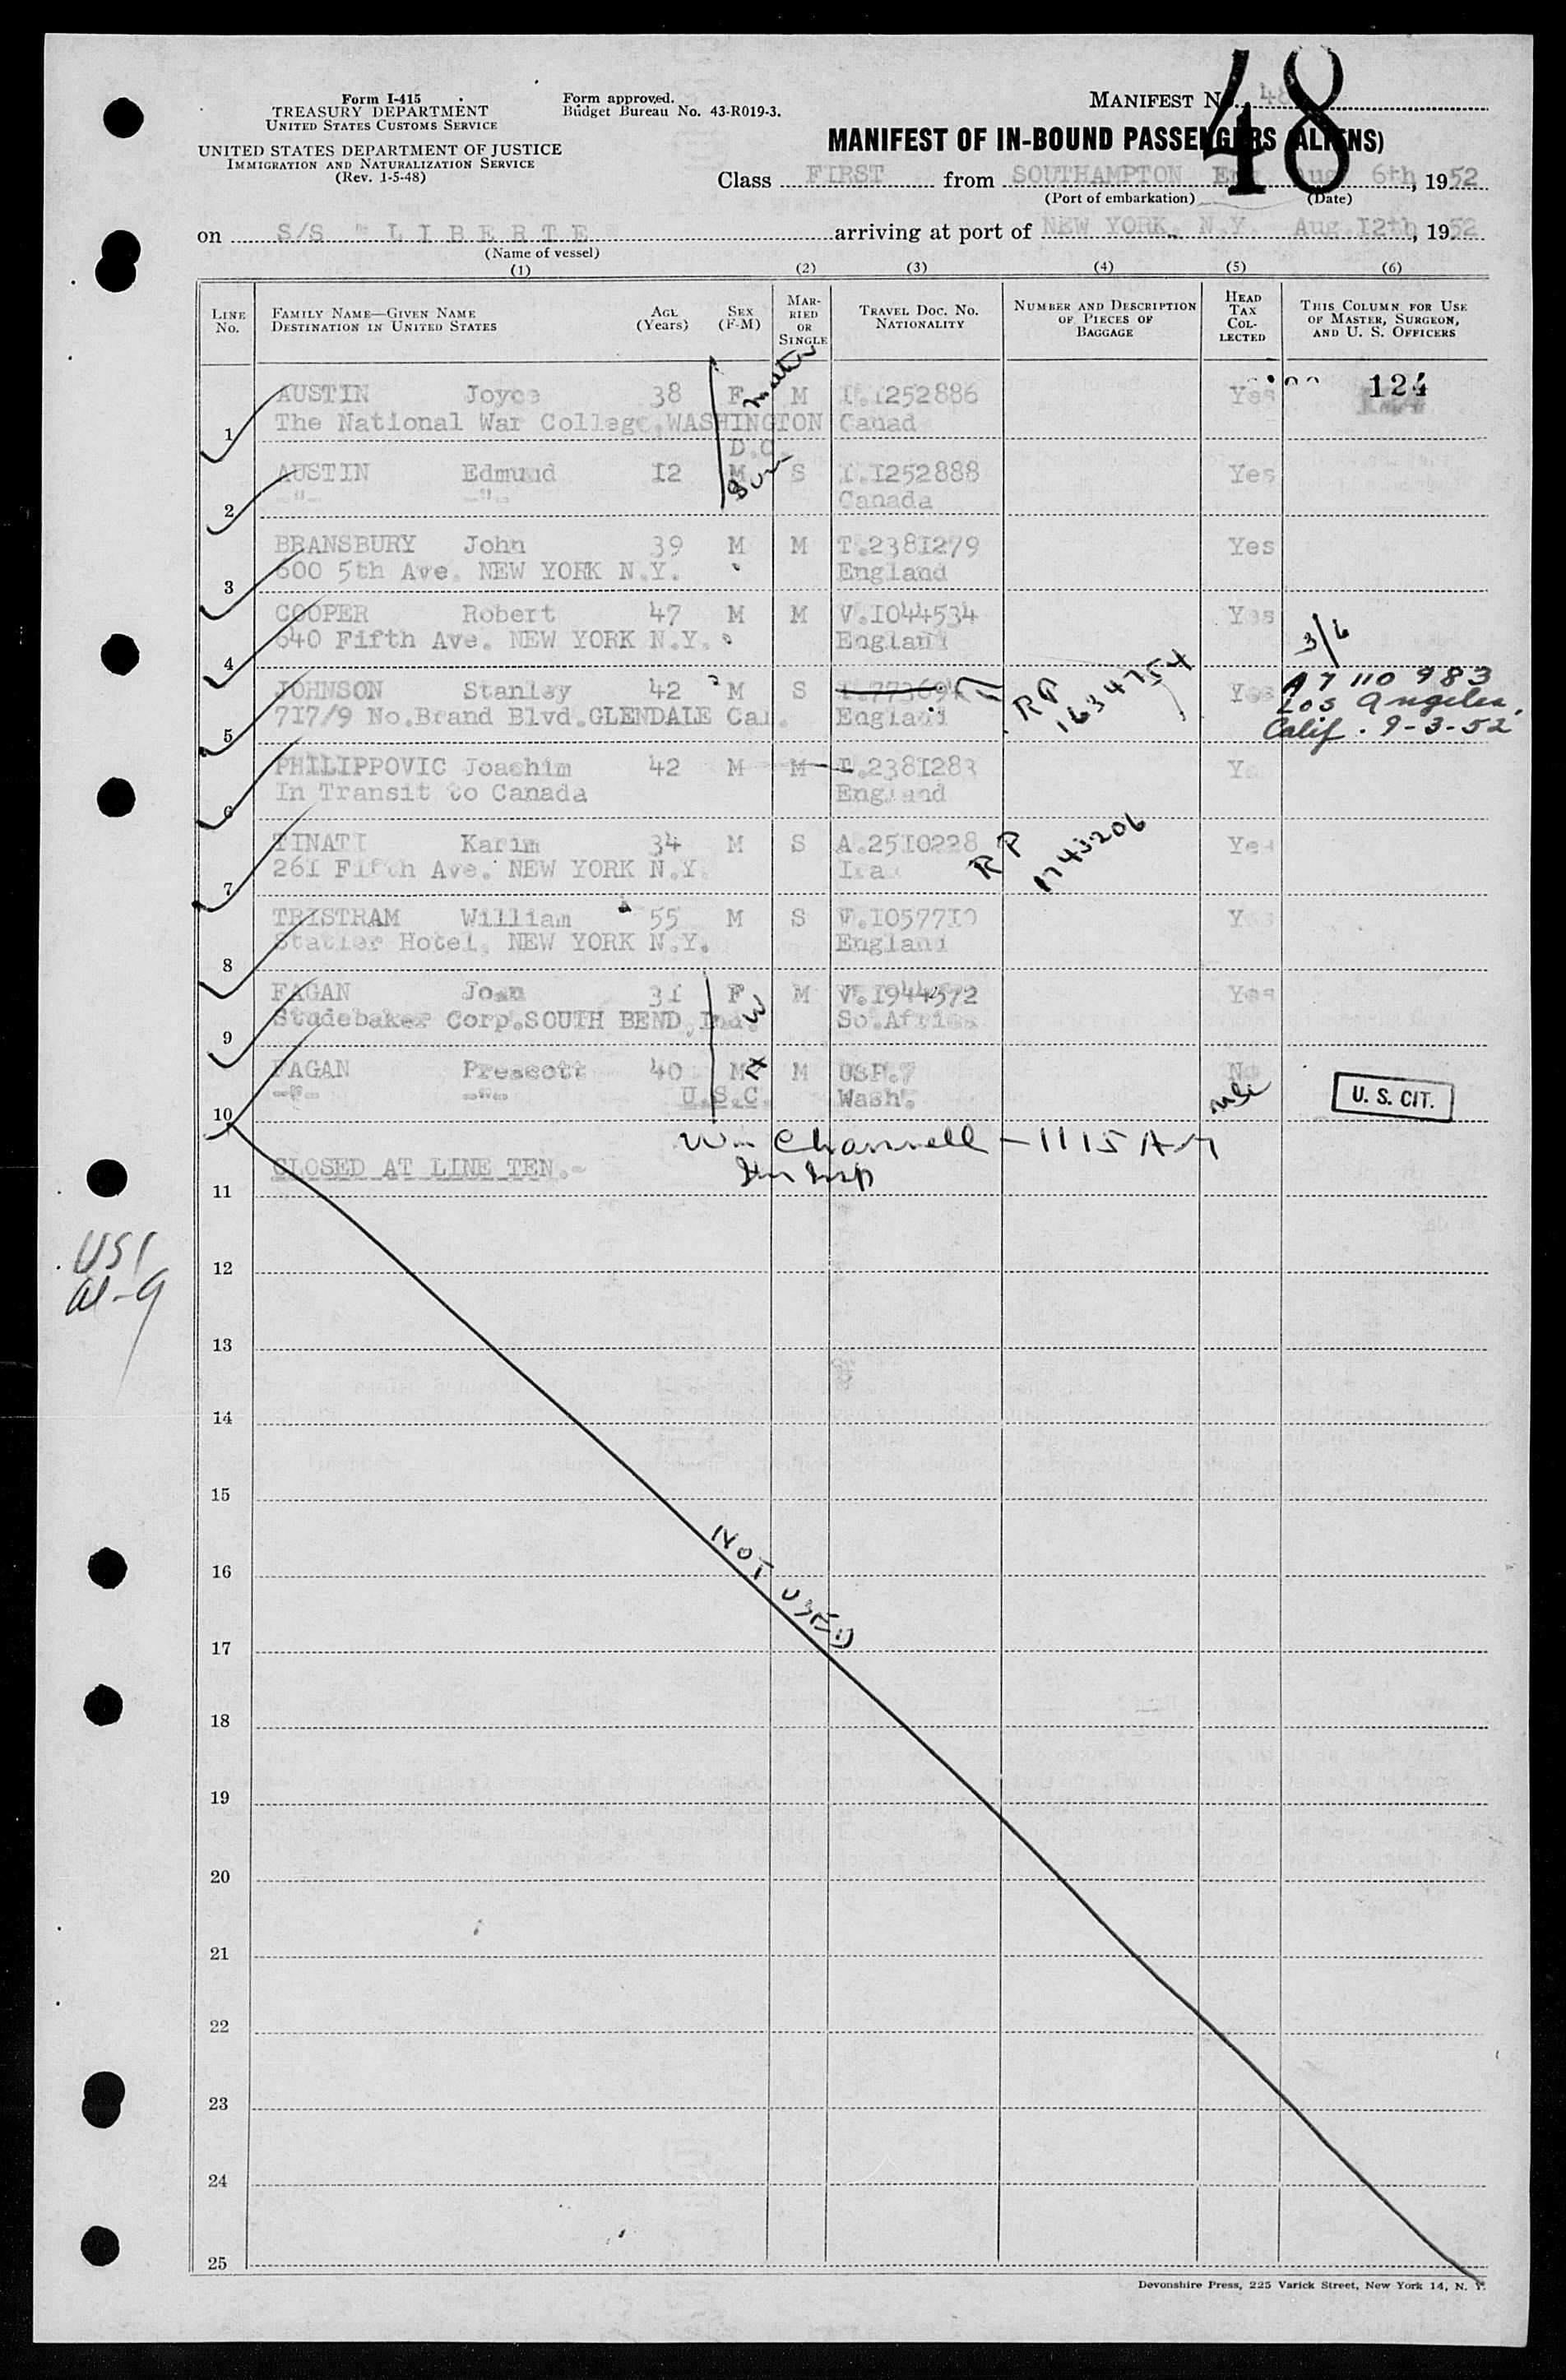 Form I-415
TREASURY DEPARTMENT
UNITED STATES CUSTOMS SERVICE
UNITED STATES DEPARTMENT OF JUSTICE
IMMIGRATION AND NATURALIZATION SERVICE
(Rev. 1-5-48)
Form approved.
Budget Bureau No. 43-R019-3.
MANIFEST No. 48
48
MANIFEST OF IN-BOUND PASSENGERS (ALIENS)
Class FIRST from SOUTHAMPTON Eng. Aug 6th, 1952
(Port of embarkation) (Date)
on S/S " LIBERTE arriving at port of NEW YORK. N.Y. Aug.12th, 1952
(Name of vessel)
(1) (2) (3) (4) (5) (6)
LINE No. FAMILY NAME—GIVEN NAME DESTINATION IN UNITED STATES AGE (Years) SEX (F-M) MARRIED OR SINGLE TRAVEL DOC. NO. NATIONALITY NUMBER AND DESCRIPTION OF PIECES OF BAGGAGE HEAD TAX COLLECTED THIS COLUMN FOR USE OF MASTER, SURGEON, AND U. S. OFFICERS
AUSTIN Joyce 38 F M I.1252886 Yes 124
1 The National War College.WASHINGTON Canad
D.C
AUSTIN Edmund 12 M Son S I.1252888 Yes
2 -"- -"- Canada
BRANSBURY John 39 M M T.2381279 Yes
3 600 5th Ave. NEW YORK N.Y. England
COOPER Robert 47 M M V.1044534 Yes
4 640 Fifth Ave. NEW YORK N.Y. England 3/6
JOHNSON Stanley 42 M S RP 1634754 Yes A7 110 983
5 717/9 No.Brand Blvd.GLENDALE Cal. England Los Angeles,
Calif. 9-3-52
PHILIPPOVIC Joachim 42 M M T.2381283 Ye
6 In Transit to Canada England
TINATI Karim 34 M S A.2510228 RP 1743206 Yes
7 261 Fifth Ave. NEW YORK N.Y. Ira
TRISTRAM William 55 M S V.1057710 Yes
8 Statler Hotel. NEW YORK N.Y. England
FAGAN Joan 31 F W M V.1944572 Yes
9 Studebaker Corp.SOUTH BEND.Ind. So.Africa
FAGAN Prescott 40 M H M USP.7 No
10 -"- -"- U.S.C. Wash. U. S. CIT.
Wm Channell - 1115 AM
CLOSED AT LINE TEN.-
Im Insp
11
US 1
al-9
12
13
14
15
NOT USED
16
17
18
19
20
21
22
23
24
25
Devonshire Press, 225 Varick Street, New York 14, N. Y.